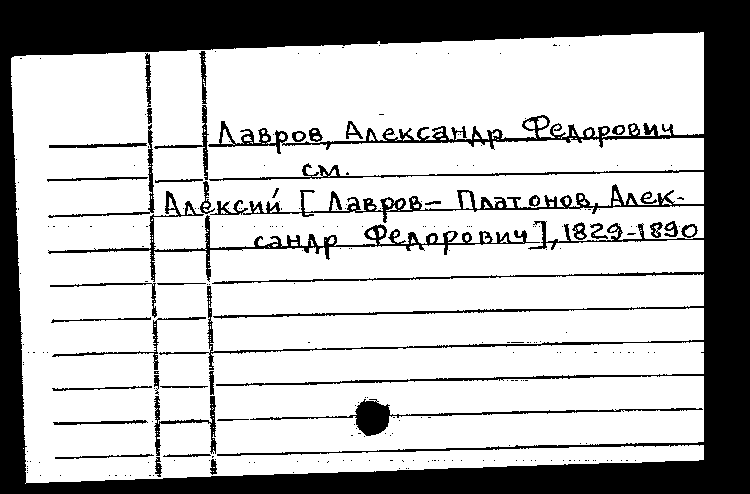 Лавров, Александр Федорович
см.
Алексий [Лавров-Платонов, Алек-
сандр Федорович], 1829-1890